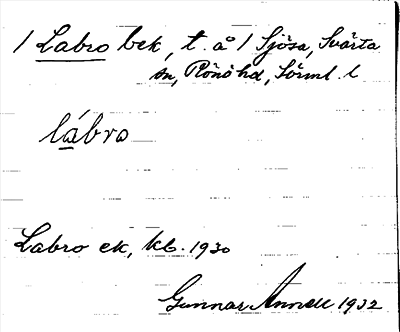 / Labro bek, t. å / Sjösa, Svärta
sn, Rönö hd, Sörml. l
lábro
Labro ek, kb. 1930
Gunnar Annell 1932